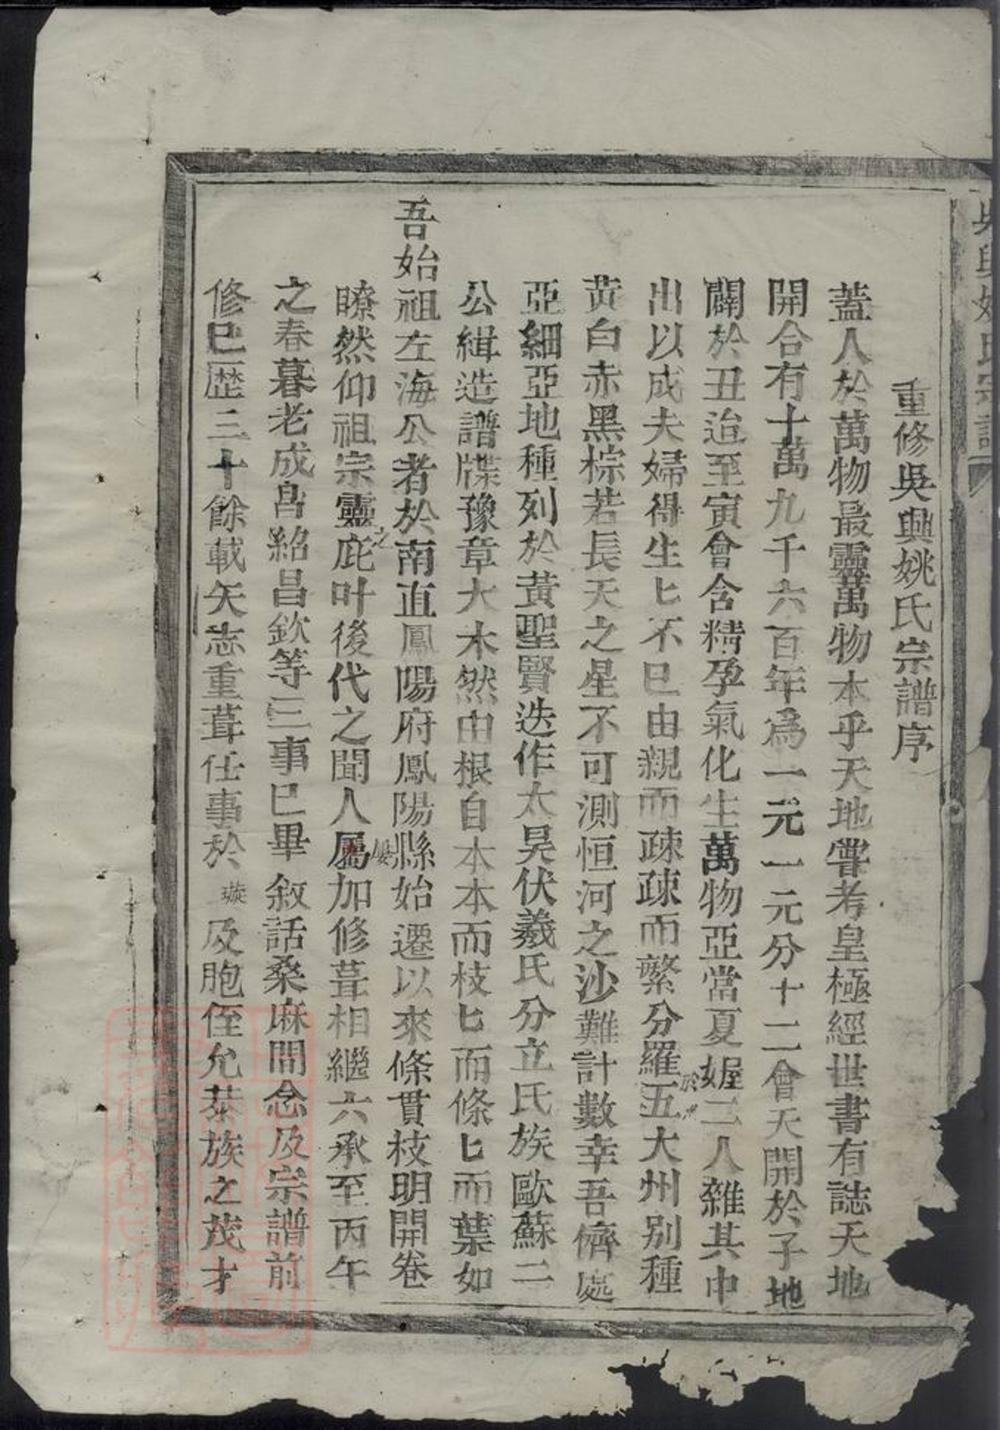 重修吳興姚氏宗譜序
蓋人於萬物最靈萬物本乎天地嘗考皇極經世書有誌天地
開合有十萬九千六百年為一元一元分十二會天開於子地
闢於丑迨至寅會含精孕氣化生萬物亞當夏娓二人雜其中
出以成夫婦得生匕不已由親而疎疎而繁分羅於五大州別種
黃白赤黑棕若長天之星不可測恒河之沙難計數幸吾儕處
亞細亞地種列於黃聖賢迭作太昊伏羲氏分立氏族歐蘇二
公緝造譜牒豫章大木然由根自本本而枝匕而條匕而葉如
吾始祖左海公者於南直鳳陽府鳳陽縣始遷以來條貫枝明開卷
瞭然仰祖宗靈之庇叶後代之聞人屬加修葺相繼六承至丙午
之春暮老成昌紹昌欽等三事已畢敘話桑麻間念及宗譜前
修已歷三十餘載矢志重葺任事於璇及胞侄允恭族之茂才
吳興姚氏宗譜